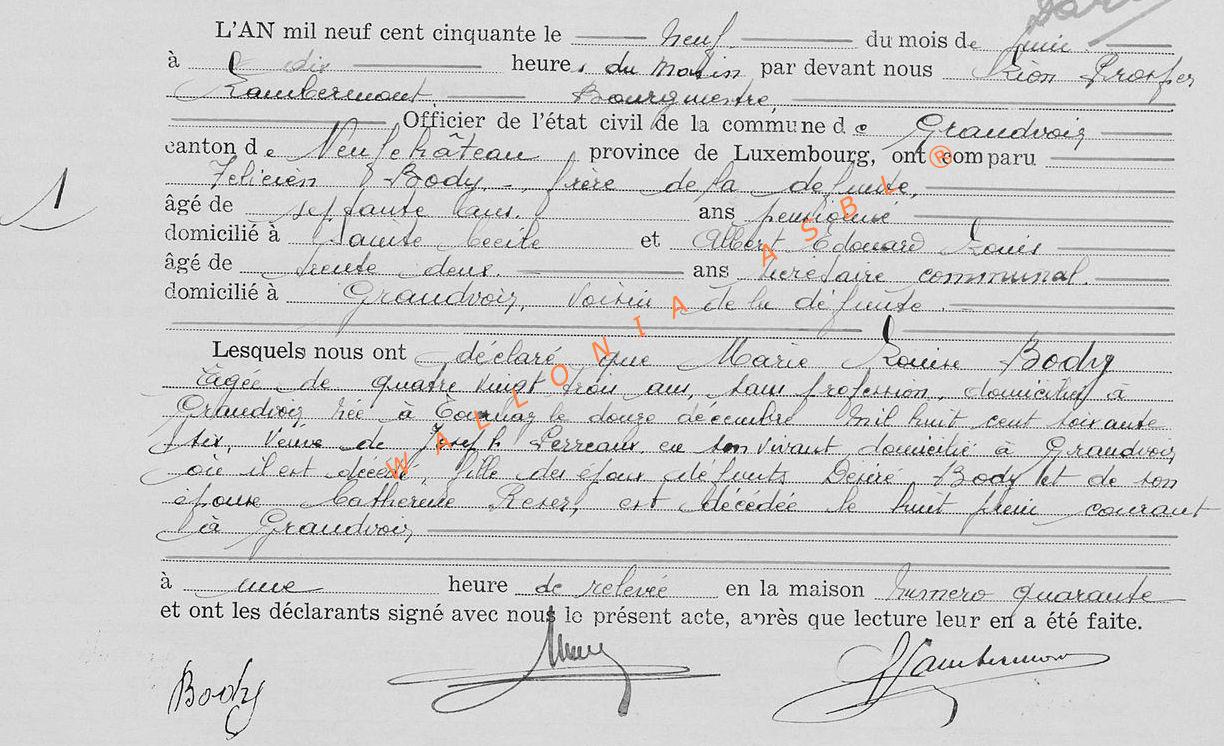 L'AN mil neuf cent cinquante le neuf du mois de juin
à dix heures du matin par devant nous Léon Prosper
Lambermont, Bourgmestre,
Officier de l'état civil de la commune de Grandvoir
canton de Neufchâteau province de Luxembourg, ont comparu
Félicien Body, frère de la défunte,
âgé de septante ans. ans pensionné
domicilié à Sainte Cécile et Albert Edouard Louis
âgé de trente deux. ans secrétaire communal.
domicilié à Grandvoir, voisin de la défunte.
Lesquels nous ont déclaré que Marie Louise Body
âgée de quatre vingt trois ans, sans profession, domiciliée à
Grandvoir née à Tournay le douze décembre mil huit cent soixante
six, veuve de Joseph Perreaux en son vivant domicilié à Grandvoir
où il est décédé, fille des époux défunts Désiré Body et de son
épouse Catherine est décédée le huit juin courant
à Grandvoir,
à une heure de relevée en la maison numéro quarante
et ont les déclarants signé avec nous le présent acte, après que lecture leur en a été faite.
Body Lambermont
1
WALLONIA ASBL ®